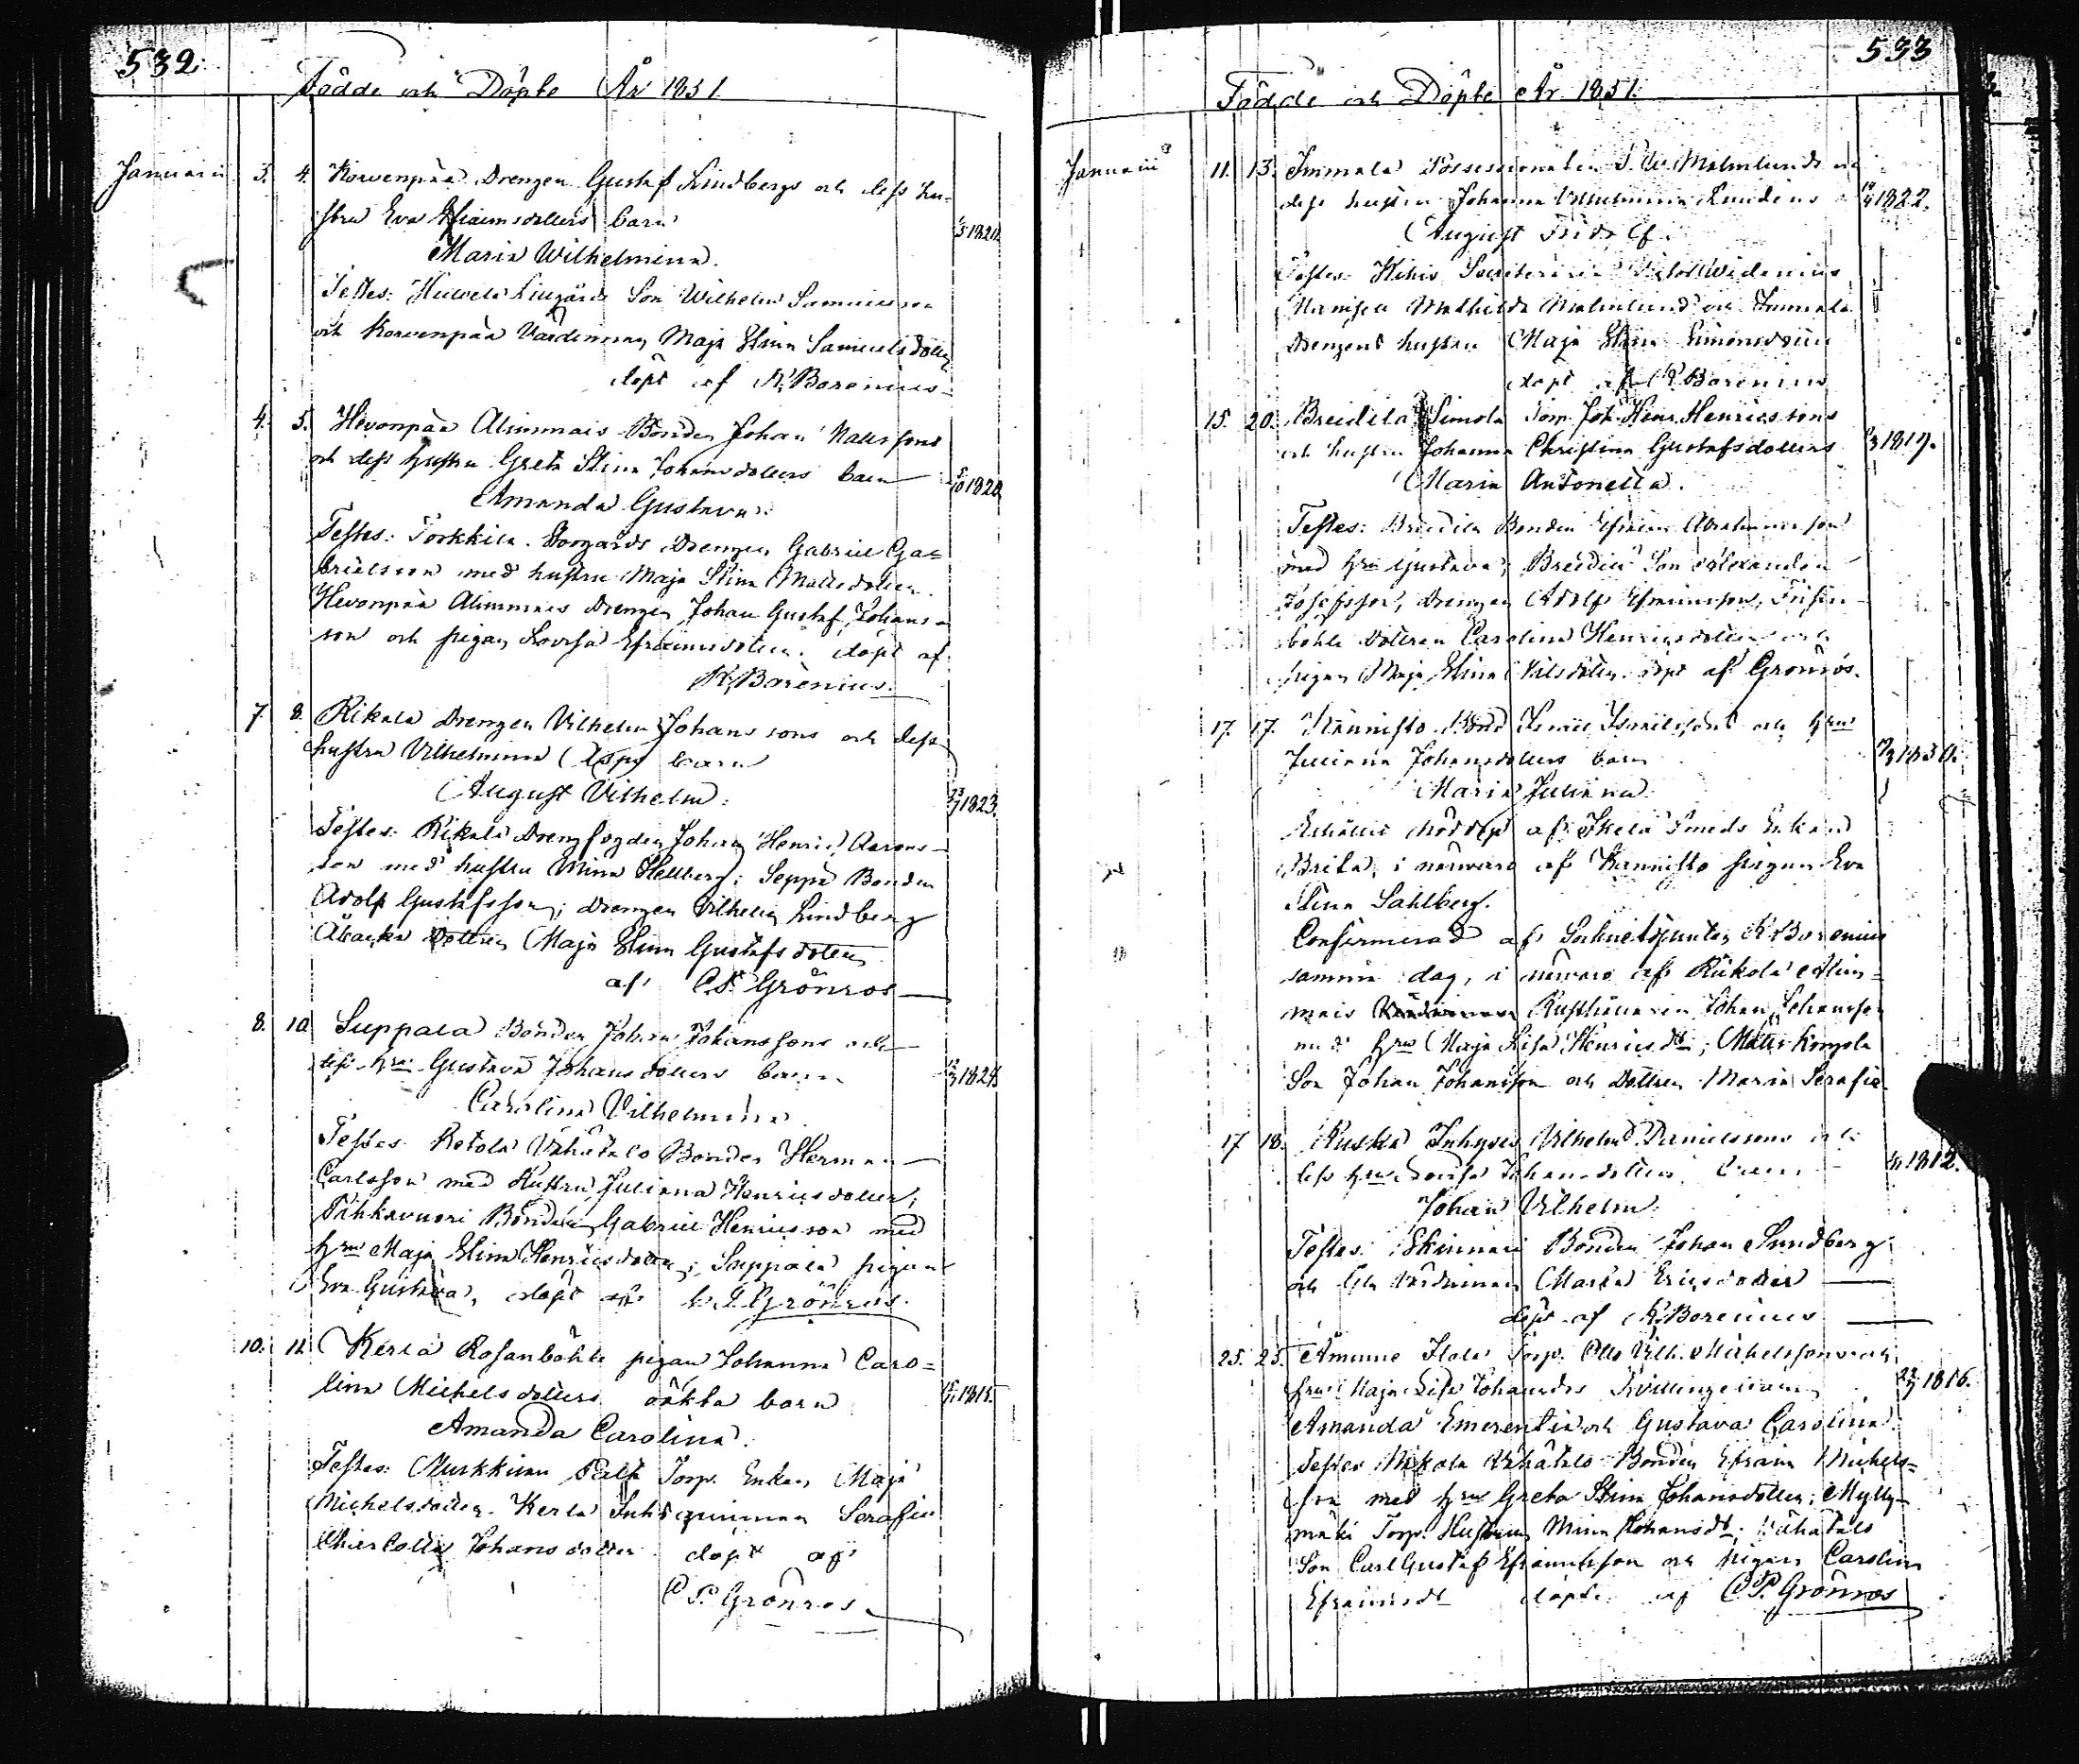 532.
Födde och Döpte År 1851.
Januarii 3. 4. Korvenpää Drengen Gustaf Lindbergs och dess hu-
stru Eva Efraimsdotters barn
Maria Wilhelmina.
Testes: Son Wilhelm Samuelsson
och Korvenpää Värdinnan Maja Stina Samuelsdotter
döpt af K. Borenius
4. 5. Hevonpää Alimmais Bonden Johan Mattssons
och dess hustru Greta Stina Johansdotters barn 1820
Amanda Gustava.
Testes: Torkkila Storgårds Drengen Gabriel Ga=
brielsson med hustru Maja Stina Mattsdotter.
Hevonpää Alimmais Drengen Johan Gustaf Johans-
son och pigan Lovisa Efraimsdotter. döpt af
K. Borenius.
7. 8. Rikala Drengen Vilhelm Johanssons och dess
hustru Vilhelmina Asps barn
August Vilhelm. 1823.
Testes: Rikala Drengfogden Johan Henric Aarons-
son med hustru Mina Hellberg; Seppä Bonden
Adolf Gustafsson; drengen Vilhelm Lindberg
Åbacka Dottren Maja Stina Gustafsdotter
af C.P. Grönros
8. 10. Suppala Bonden Johan Johanssons och
dess hru Gustava Johansdotters barn 1824
Carolina Vilhelmina.
Testes Ketola Vähätalo Bonden Herman
Carlsson med Hustru Juliana Henricsdotter;
Pihkavuori Bonden Gabriel Henricsson med
hru Maja Stina Henricsdotter; Suppala pigan
Eva Gustava, döpt af C.P. Grönros.
10. 11. Kerla Rosanböhle pigan Johanna Caro=
lina Michelsdotters oäkta barn 1815.
Amanda Carolina.
Testes: Palt Torp. Enkan Maja
Michelsdotter. Kerla Inhysqvinnan Serafia
Charlotta Johansdotter döpt af
C.P. Grönros
533
Födde och Döpte År 1851.
Januarii 11. 13. Immala Possessionaten Malmlunds och
dess hustru Johanna Vilhelmina 1822.
August Fridolf.
Testes: Widenius
Mamsell Mathilda Malmlund och Immala
Drengens hustru Maja Stina Simonsdotter
döpt af K. Borenius
15. 20. Breidila Simola Torp. Joh. Henr. Henricssons
och hustru Johanna Christina Gustafsdotters 1819.
Maria Antonetta.
Testes: Breidila Bonden Efraim Abrahamsson
med hru Gustava; Breidila Son Alexander
Josefsson, drengen Adolf Efraimsson,
böhle Dottren Carolina Henricsdotter och
pigan Maja Stina Nilsdotter. döpt af Grönros.
17. 17. Kännisto Bond. Israel Israelssons och hru
Juliana Johansdotters barn 1830.
Maria Juliana.
Erhållit nöddop af Smeds Enkan
Brita, i närvaro af Kannisto pigan Eva
Stina Sahlberg.
Confirmerad af Sockneadjunten K. Borenius
samma dag, i närvaro af Rikola Alim=
mais Rusthållaren Johan Johansson
med hru Maja Lisa Henricsdtr;
Son Johan Johansson och Dottren Maria Serafia
17 18. Ruska Inhyses Vilhelm Danielssons och
dess hru Lovisa Johansdotters barn 1812.
Johan Vilhelm.
Testes: Skinnari Bonden Johan Sundberg
och Värdinnan Maria Ericsdotter
döpt af K. Borenius
25. 25. Ämmue Torp. Otto Vilh. Michelssons och
hru Maja Lisa Johansdrs Tvillingebarn 1816.
Amanda Emerentia och Gustava Carolina.
Testes Mikola Vähätalo Bonden Efraim Michels=
son med hru Greta Stina Johansdotter; Mylly-
mäki Torp. Hustrun Mina Johansdt; Vähätalo
Son Carl Gustaf Efraimsson och pigan Carolina
Efraimsdt döpte af C.P. Grönros